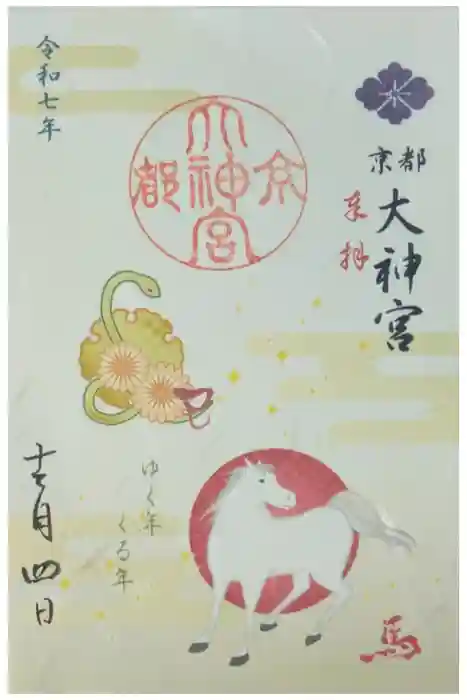 京都
大神宮
来拝
京都
大神宮
令和七年
ゆく年
くる年
馬
十二月四日